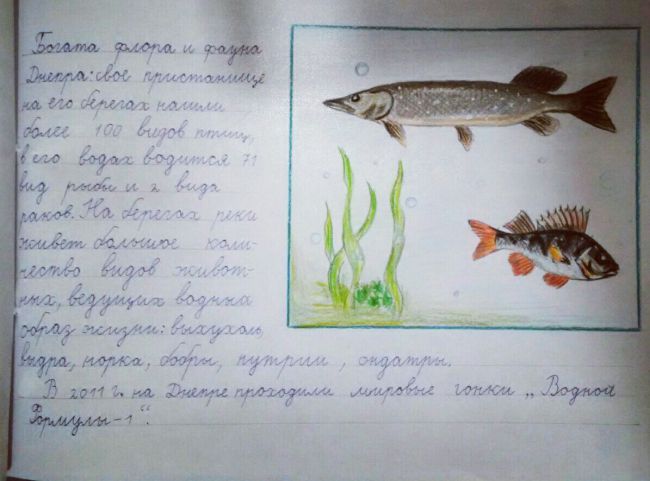 Богата флора и фауна
Днепра: свое пристанище
на его берегах нашли
более 100 видов птиц,
в его водах водится 71
вид рыбы и 2 вида
раков. На берегах реки
живет большое коли-
чество видов живот-
ных, ведущих водный
образ жизни: выхухоль,
выдра, норка, бобры, нутрии, ондатры.
В 2011 г. на Днепре проходили мировые гонки „Водной
Формулы-1“.